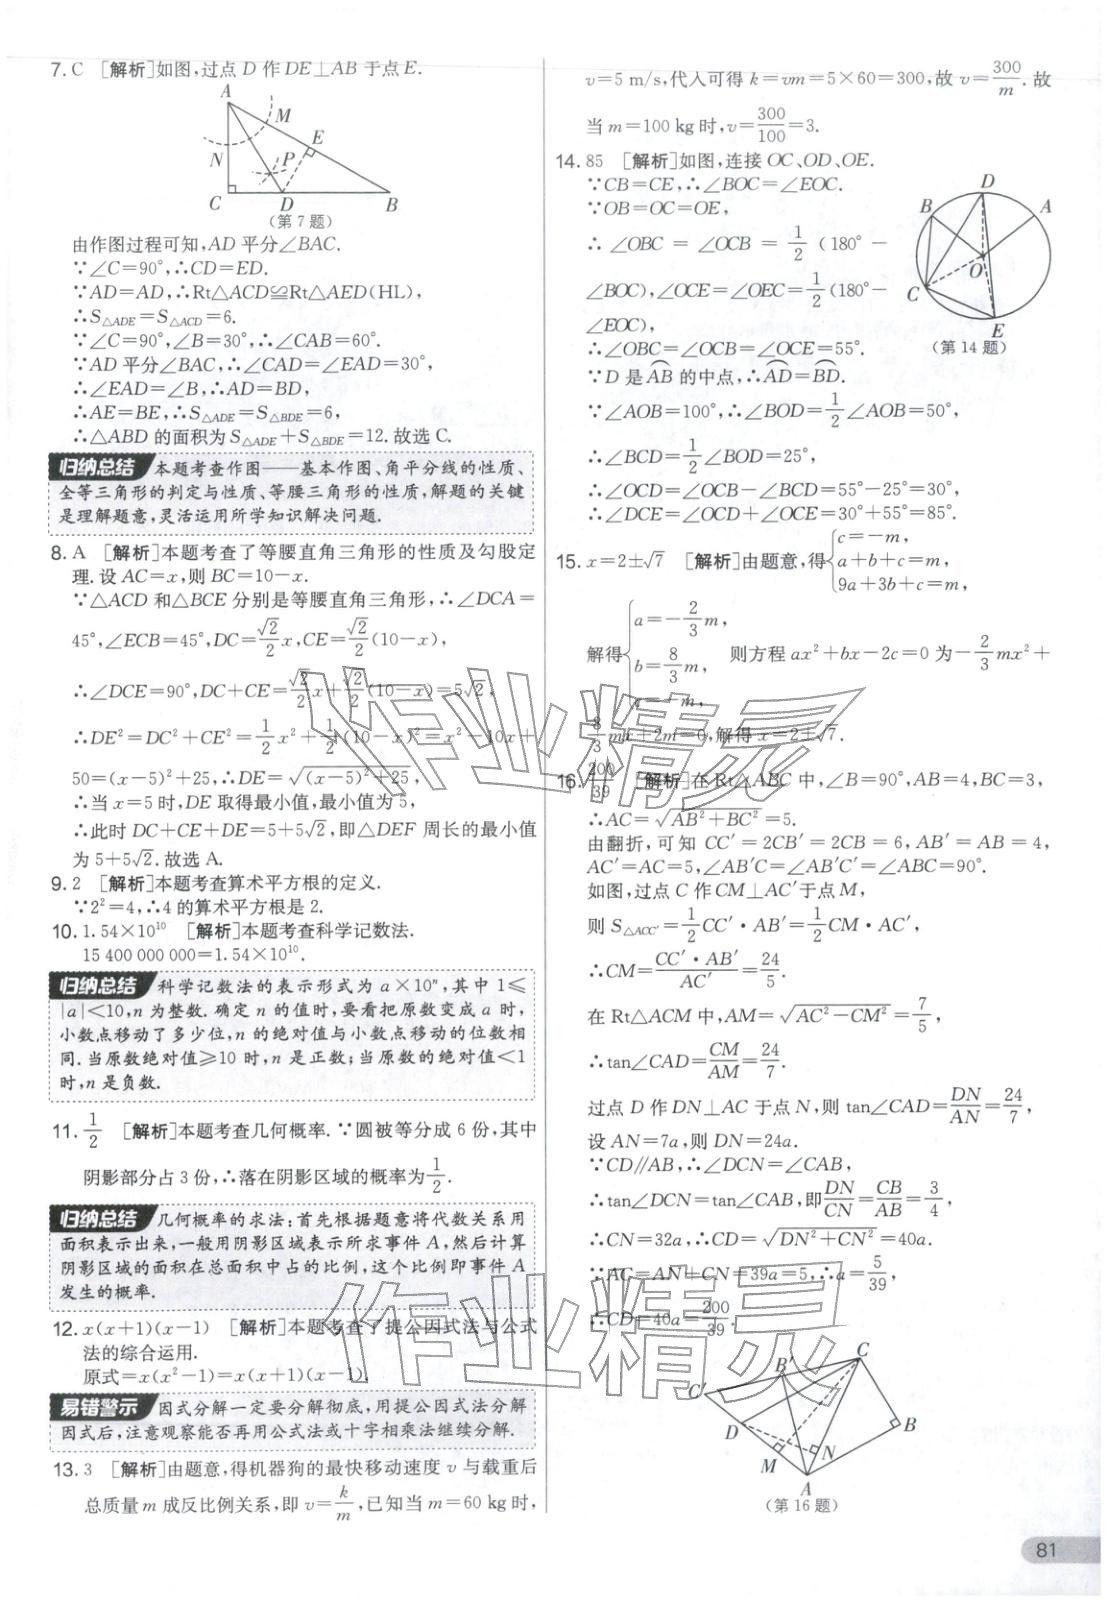 7. C [解析]如图,过点 D 作 DE⊥AB 于点 E.
A
M
E
N
P
C
D
B
(第 7 题)
由作图过程可知,AD 平分∠BAC.
∵∠C=90°,∴CD=ED.
∵AD=AD,∴Rt△ACD≌Rt△AED(HL),
∴S△ADE=S△ACD=6.
∵∠C=90°,∠B=30°,∴∠CAB=60°.
∵AD 平分∠BAC,∴∠CAD=∠EAD=30°,
∴∠EAD=∠B,∴AD=BD,
∴AE=BE,∴S△ADE=S△BDE=6,
∴△ABD 的面积为 S△ADE+S△BDE=12.故选 C.
归纳总结 本题考查作图——基本作图、角平分线的性质、
全等三角形的判定与性质、等腰三角形的性质,解题的关键
是理解题意,灵活运用所学知识解决问题.
8. A [解析]本题考查了等腰直角三角形的性质及勾股定
理.设 AC=x,则 BC=10-x.
∵△ACD 和△BCE 分别是等腰直角三角形,∴∠DCA=
45°,∠ECB=45°,DC=√2/2 x,CE=√2/2(10-x),
∴∠DCE=90°,DC+CE=√2/2 x+√2/2(10-x)=5√2,
∴DE²=DC²+CE²=1/2 x²+1/2(10-x)²=x²-10x+
50=(x-5)²+25,∴DE=√((x-5)²+25),
∴当 x=5 时,DE 取得最小值,最小值为 5,
∴此时 DC+CE+DE=5+5√2,即△DEF 周长的最小值
为 5+5√2.故选 A.
9. 2 [解析]本题考查算术平方根的定义.
∵2²=4,∴4 的算术平方根是 2.
10. 1.54×10¹⁰ [解析]本题考查科学记数法.
15 400 000 000=1.54×10¹⁰.
归纳总结 科学记数法的表示形式为 a×10ⁿ,其中 1≤
|a|<10,n 为整数.确定 n 的值时,要看把原数变成 a 时,
小数点移动了多少位,n 的绝对值与小数点移动的位数相
同.当原数绝对值≥10 时,n 是正数;当原数的绝对值<1
时,n 是负数.
11. 1/2 [解析]本题考查几何概率.∵圆被等分成 6 份,其中
阴影部分占 3 份,∴落在阴影区域的概率为 1/2.
归纳总结 几何概率的求法:首先根据题意将代数关系用
面积表示出来,一般用阴影区域表示所求事件 A,然后计算
阴影区域的面积在总面积中占的比例,这个比例即事件 A
发生的概率.
12. x(x+1)(x-1) [解析]本题考查了提公因式法与公式
法的综合运用.
原式=x(x²-1)=x(x+1)(x-1).
易错警示 因式分解一定要分解彻底,用提公因式法分解
因式后,注意观察能否再用公式法或十字相乘法继续分解.
13. 3 [解析]由题意,得机器狗的最快移动速度 v 与载重后
总质量 m 成反比例关系,即 v=k/m,已知当 m=60 kg 时,
v=5 m/s,代入可得 k=vm=5×60=300,故 v=300/m.故
当 m=100 kg 时,v=300/100=3.
14. 85 [解析]如图,连接 OC、OD、OE.
∵CB=CE,∴∠BOC=∠EOC.
∵OB=OC=OE,
∴∠OBC=∠OCB=1/2(180°-
∠BOC),∠OCE=∠OEC=1/2(180°-
∠EOC),
∴∠OBC=∠OCB=∠OCE=55°.
D
B
A
O
C
E
(第 14 题)
∵D 是 AB⌒ 的中点,∴AD⌒=BD⌒.
∵∠AOB=100°,∴∠BOD=1/2∠AOB=50°,
∴∠BCD=1/2∠BOD=25°,
∴∠OCD=∠OCB-∠BCD=55°-25°=30°,
∴∠DCE=∠OCD+∠OCE=30°+55°=85°.
15. x=2±√7 [解析]由题意,得{c=-m,
a+b+c=m,
9a+3b+c=m,
解得{a=-2/3 m,
b=8/3 m,
c=-m,
则方程 ax²+bx-2c=0 为-2/3 mx²+
8/3 mx+2m=0,解得 x=2±√7.
16. 200/39 [解析]在 Rt△ABC 中,∠B=90°,AB=4,BC=3,
∴AC=√(AB²+BC²)=5.
由翻折,可知 CC′=2CB′=2CB=6,AB′=AB=4,
AC′=AC=5,∠AB′C=∠AB′C′=∠ABC=90°.
如图,过点 C 作 CM⊥AC′于点 M,
则 S△ACC′=1/2 CC′·AB′=1/2 CM·AC′,
∴CM=CC′·AB′/AC′=24/5.
在 Rt△ACM 中,AM=√(AC²-CM²)=7/5,
∴tan∠CAD=CM/AM=24/7.
过点 D 作 DN⊥AC 于点 N,则 tan∠CAD=DN/AN=24/7,
设 AN=7a,则 DN=24a.
∵CD∥AB,∴∠DCN=∠CAB,
∴tan∠DCN=tan∠CAB,即DN/CN=CB/AB=3/4,
∴CN=32a,∴CD=√(DN²+CN²)=40a.
∵AC=AN+CN=39a=5,∴a=5/39,
∴CD=40a=200/39.
C
B′
C′
D
B
M
N
A
(第 16 题)
作业精灵
作业精灵
81